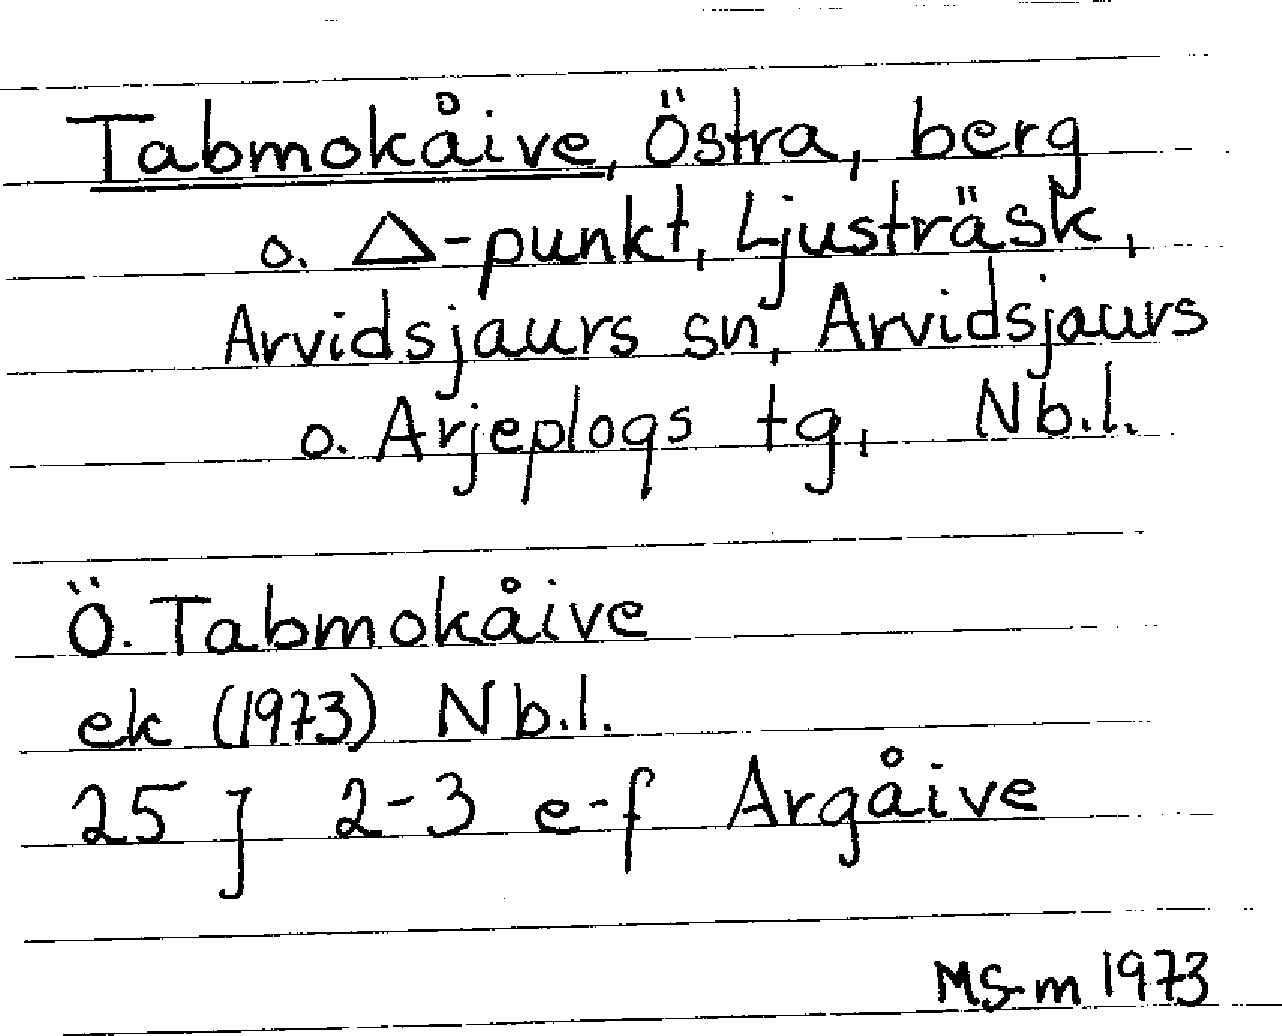 Tabmokåive, Östra, berg
o. △-punkt, Ljusträsk,
Arvidsjaurs sn, Arvidsjaurs
o. Arjeplogs tg, Nb.l.
Ö. Tabmokåive
ek (1973) Nb.l.
25 J 2-3 e-f Argåive
MS-m 1973